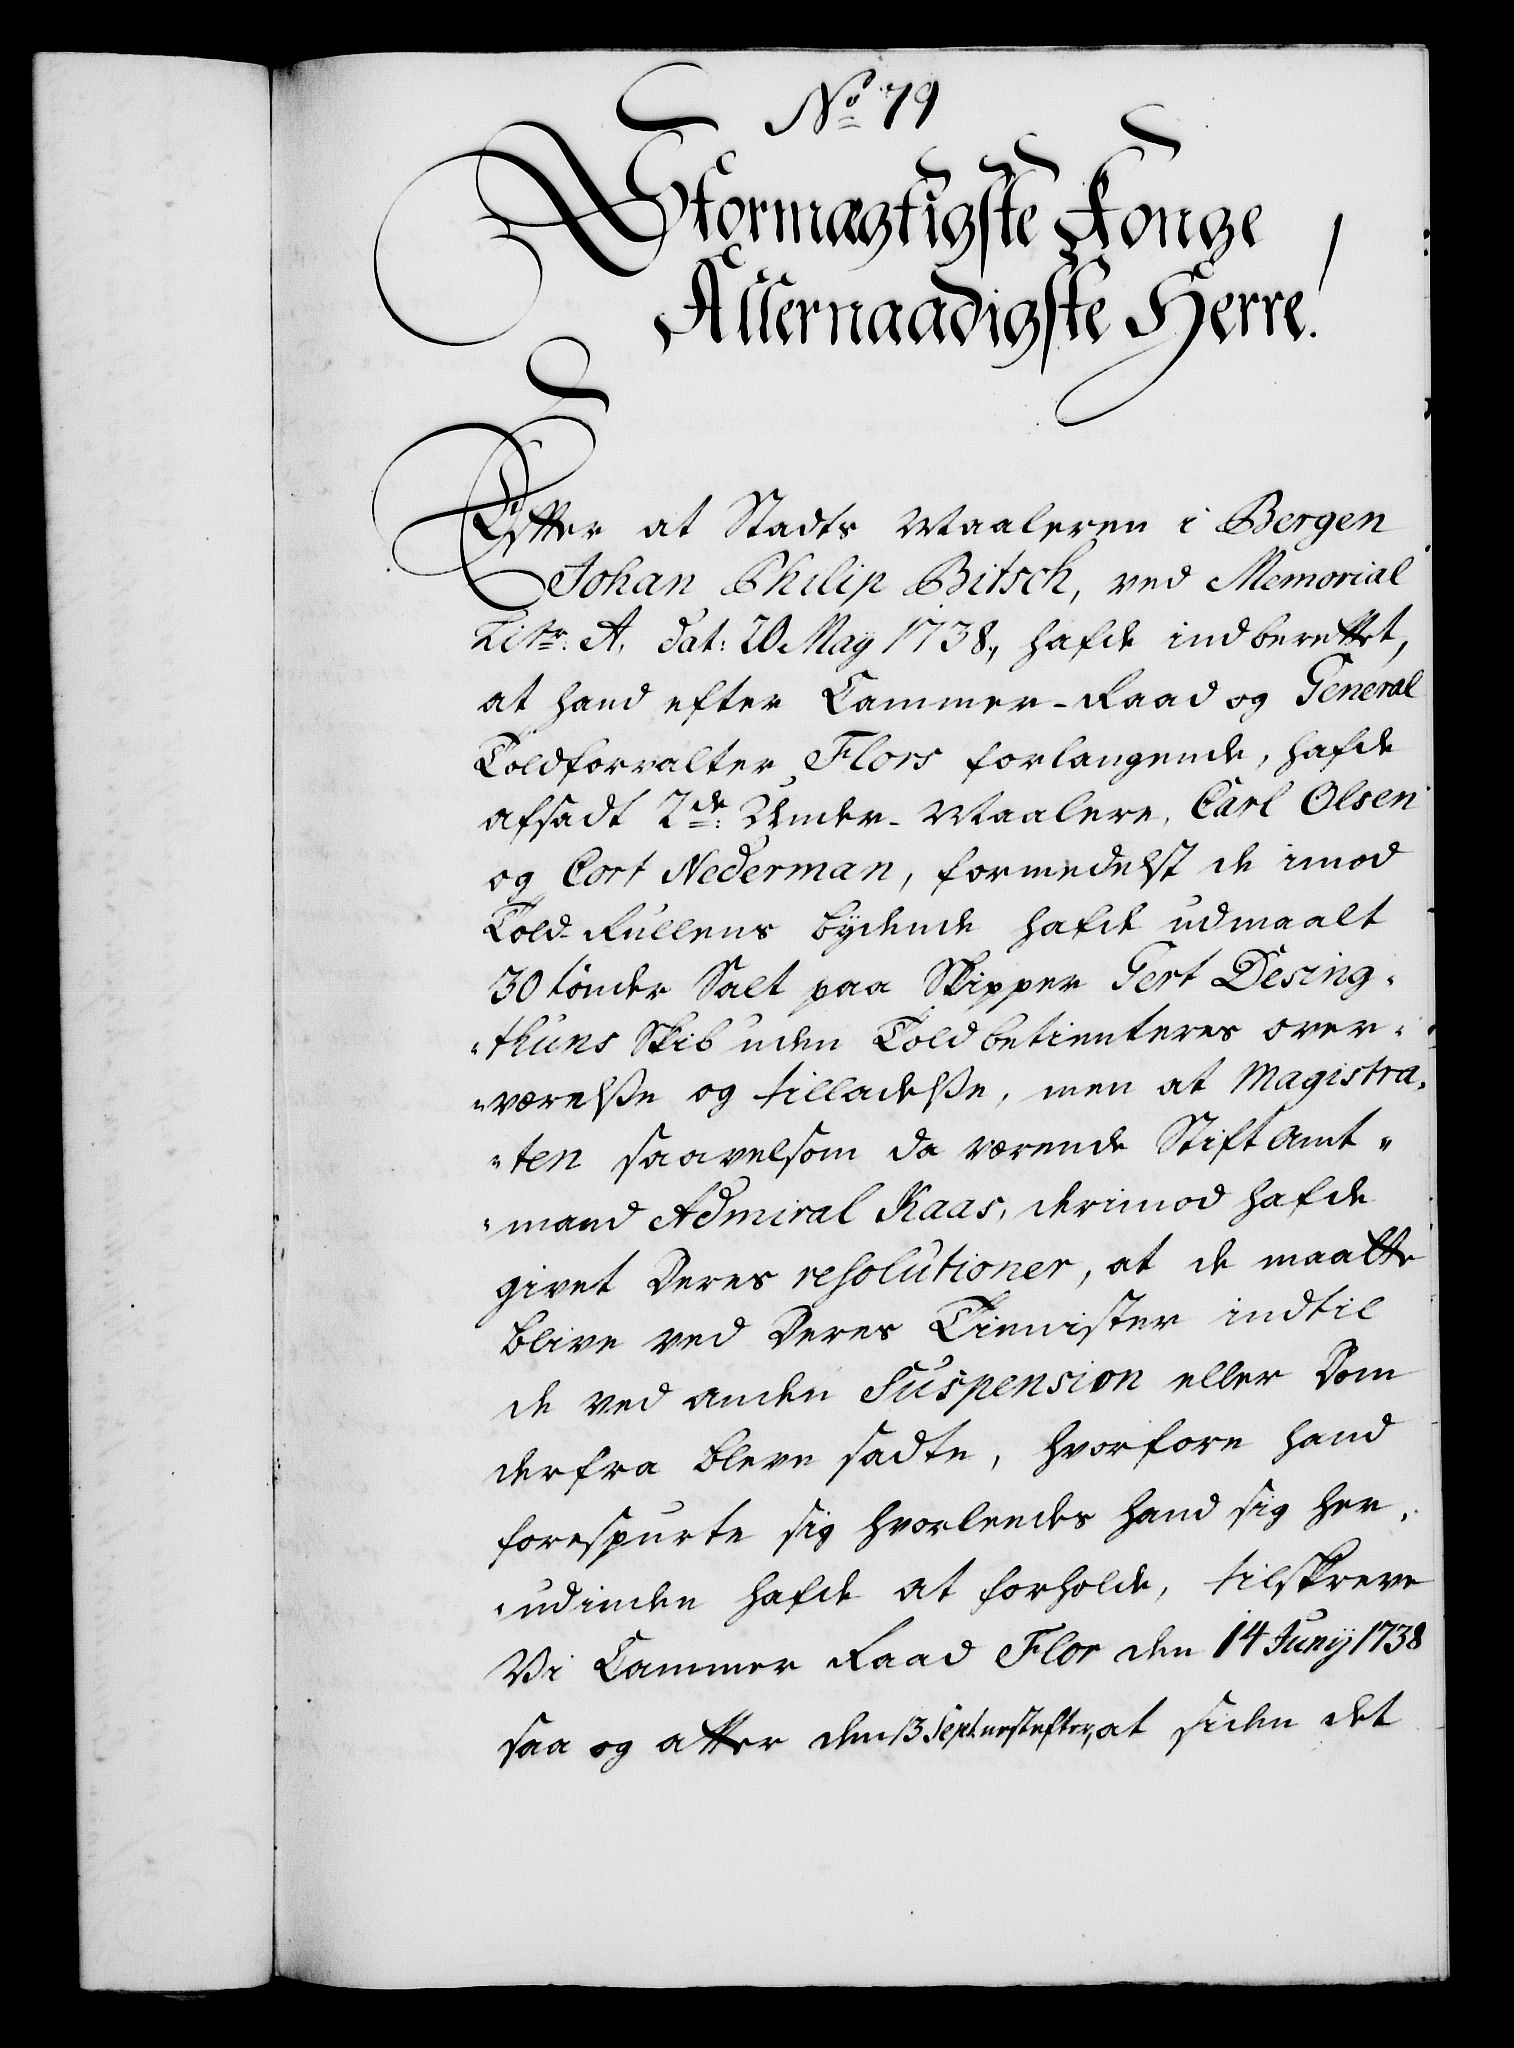 No 79
Stormægtigste Konge
Allernaadigste Herre!
Efter at Stadts Maaleren i Bergen
Johan Philip Bitsch, ved Memorial
Litr: A. dat: 20 May 1738, hafde indberettet,
at hand efter Cammer-Raad og General
Toldforvalter Flors forlangende, hafde
afsadt 2de: Under-Maalere, Carl Olsen
og Cort Nederman, formedelst de imod
Told-Rullens bydende hafde udmaalt
30 tønder Salt paa Skipper Gert Desing-
-thuns Skib uden Toldbetienteres over-
-værelße og tilladelße, men at Magistra-
-ten saavelsom da værende Stiftamt-
-mand Admiral Kaas, derimod hafde
givet deres resolutioner, at de maatte
blive ved deres Tienister indtil
de ved anden Suspension eller Dom
derfra bleve sadte, hvorfore hand
forespurte sig hvorledes hand sig her-
-udinden hafde at forholde, tilskreve
Vi Cammer Raad Flor den 14 Junij 1738
saa og atter den 13 Sept: nestefter, at siden det